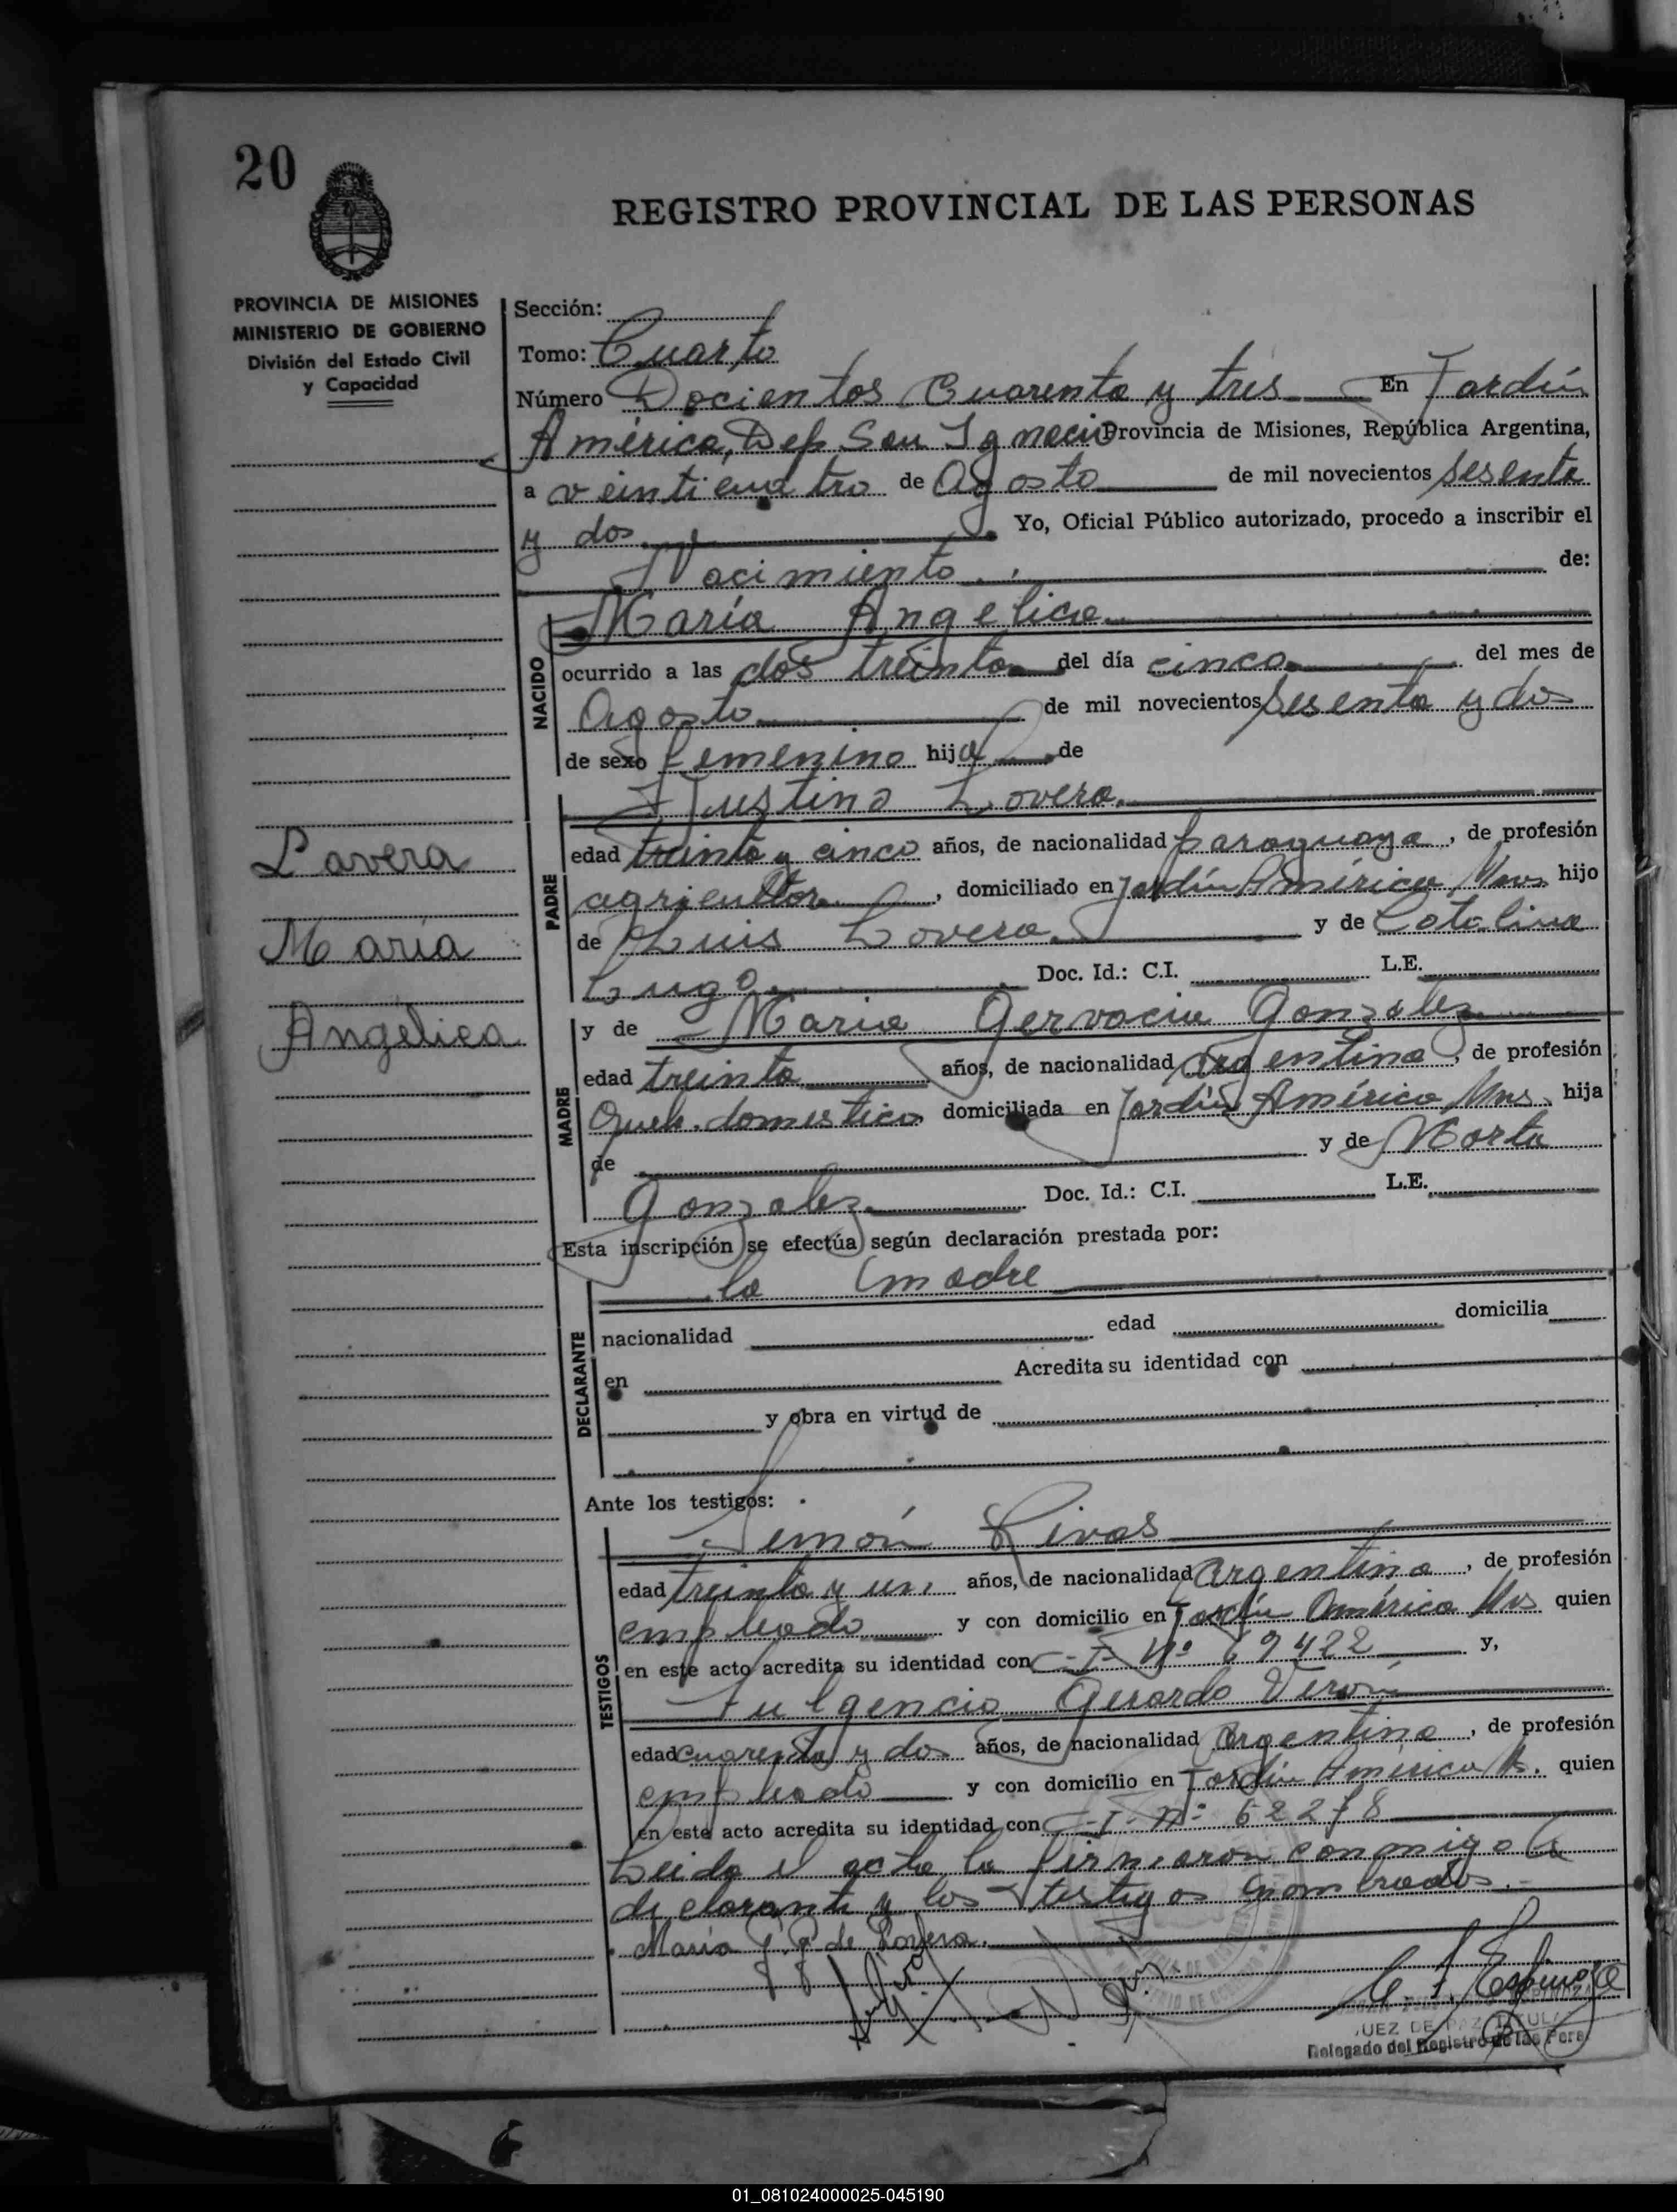 20
REGISTRO PROVINCIAL DE LAS PERSONAS
PROVINCIA DE MISIONES
MINISTERIO DE GOBIERNO
División del Estado Civil
y Capacidad
Sección:
Tomo: Cuarto
Número Docientos Cuarenta y tres En Jardín
América, Dep San Ignacio Provincia de Misiones, República Argentina,
a veinticuatro de Agosto de mil novecientos sesenta
y dos. Yo, Oficial Público autorizado, procedo a inscribir el
Nacimiento de:
NACIDO
María Angelica
ocurrido a las dos treinta del día cinco del mes de
Agosto de mil novecientos sesenta y dos
de sexo femenino hija de
PADRE
Justino Lovera
edad treinta y cinco años, de nacionalidad paraguaya, de profesión
agricultor, domiciliado en Jardín América Mns hijo
de Luis Lovera y de Catalina
Lugo Doc. Id.: C.I. L.E.
Lavera
María
Angélica
MADRE
y de Maria Gervacia Gonzalez
edad treinta años, de nacionalidad argentina, de profesión
Queh. domestico domiciliada en Jardín América Mns. hija
de y de Marta
Gonzalez Doc. Id.: C.I. L.E.
Esta inscripción se efectúa según declaración prestada por:
DECLARANTE
la madre
nacionalidad edad domicilia
en Acredita su identidad con
y obra en virtud de
Ante los testigos:
TESTIGOS
Rivas
edad treinta y un. años, de nacionalidad argentina, de profesión
empleado y con domicilio en Jardín América Mns quien
en este acto acredita su identidad con C-I- Nº 69422 y,
Fulgencio Gerardo Verón
edad cuarenta y dos años, de nacionalidad argentina, de profesión
empleado y con domicilio en Jardín América M. quien
en este acto acredita su identidad con C-I- Nº 62278
Leida el acta la firmaron conmigo la
declarante y los testigos nombrados.-
María G. G. de Lovera.
JUEZ DE PAZ TITULAR
Delegado del Registro de las Pers.
01_081024000025-045190